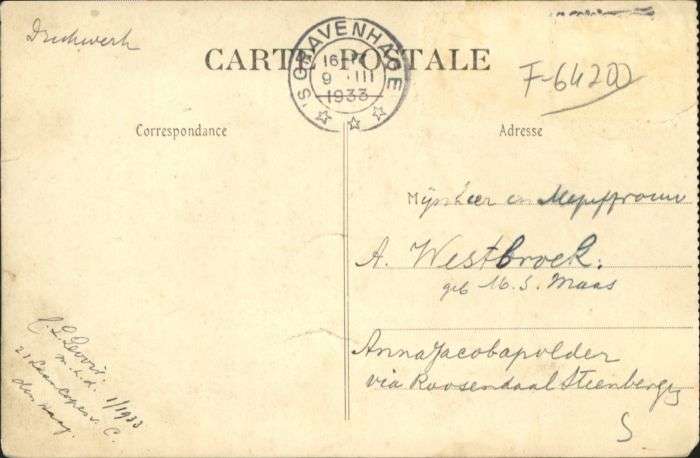 Drukwerk
CARTE POSTALE
'S GRAVENHAGE
16
9 III
1933
F-64200
Correspondance
Adresse
Mijnheer en Mejuffrouw
A. Westbroek.
geb M. S. Maas
AnnaJacobapolder
via Roosendaal Steenbergen
1/1933
C.
den Haag.
S